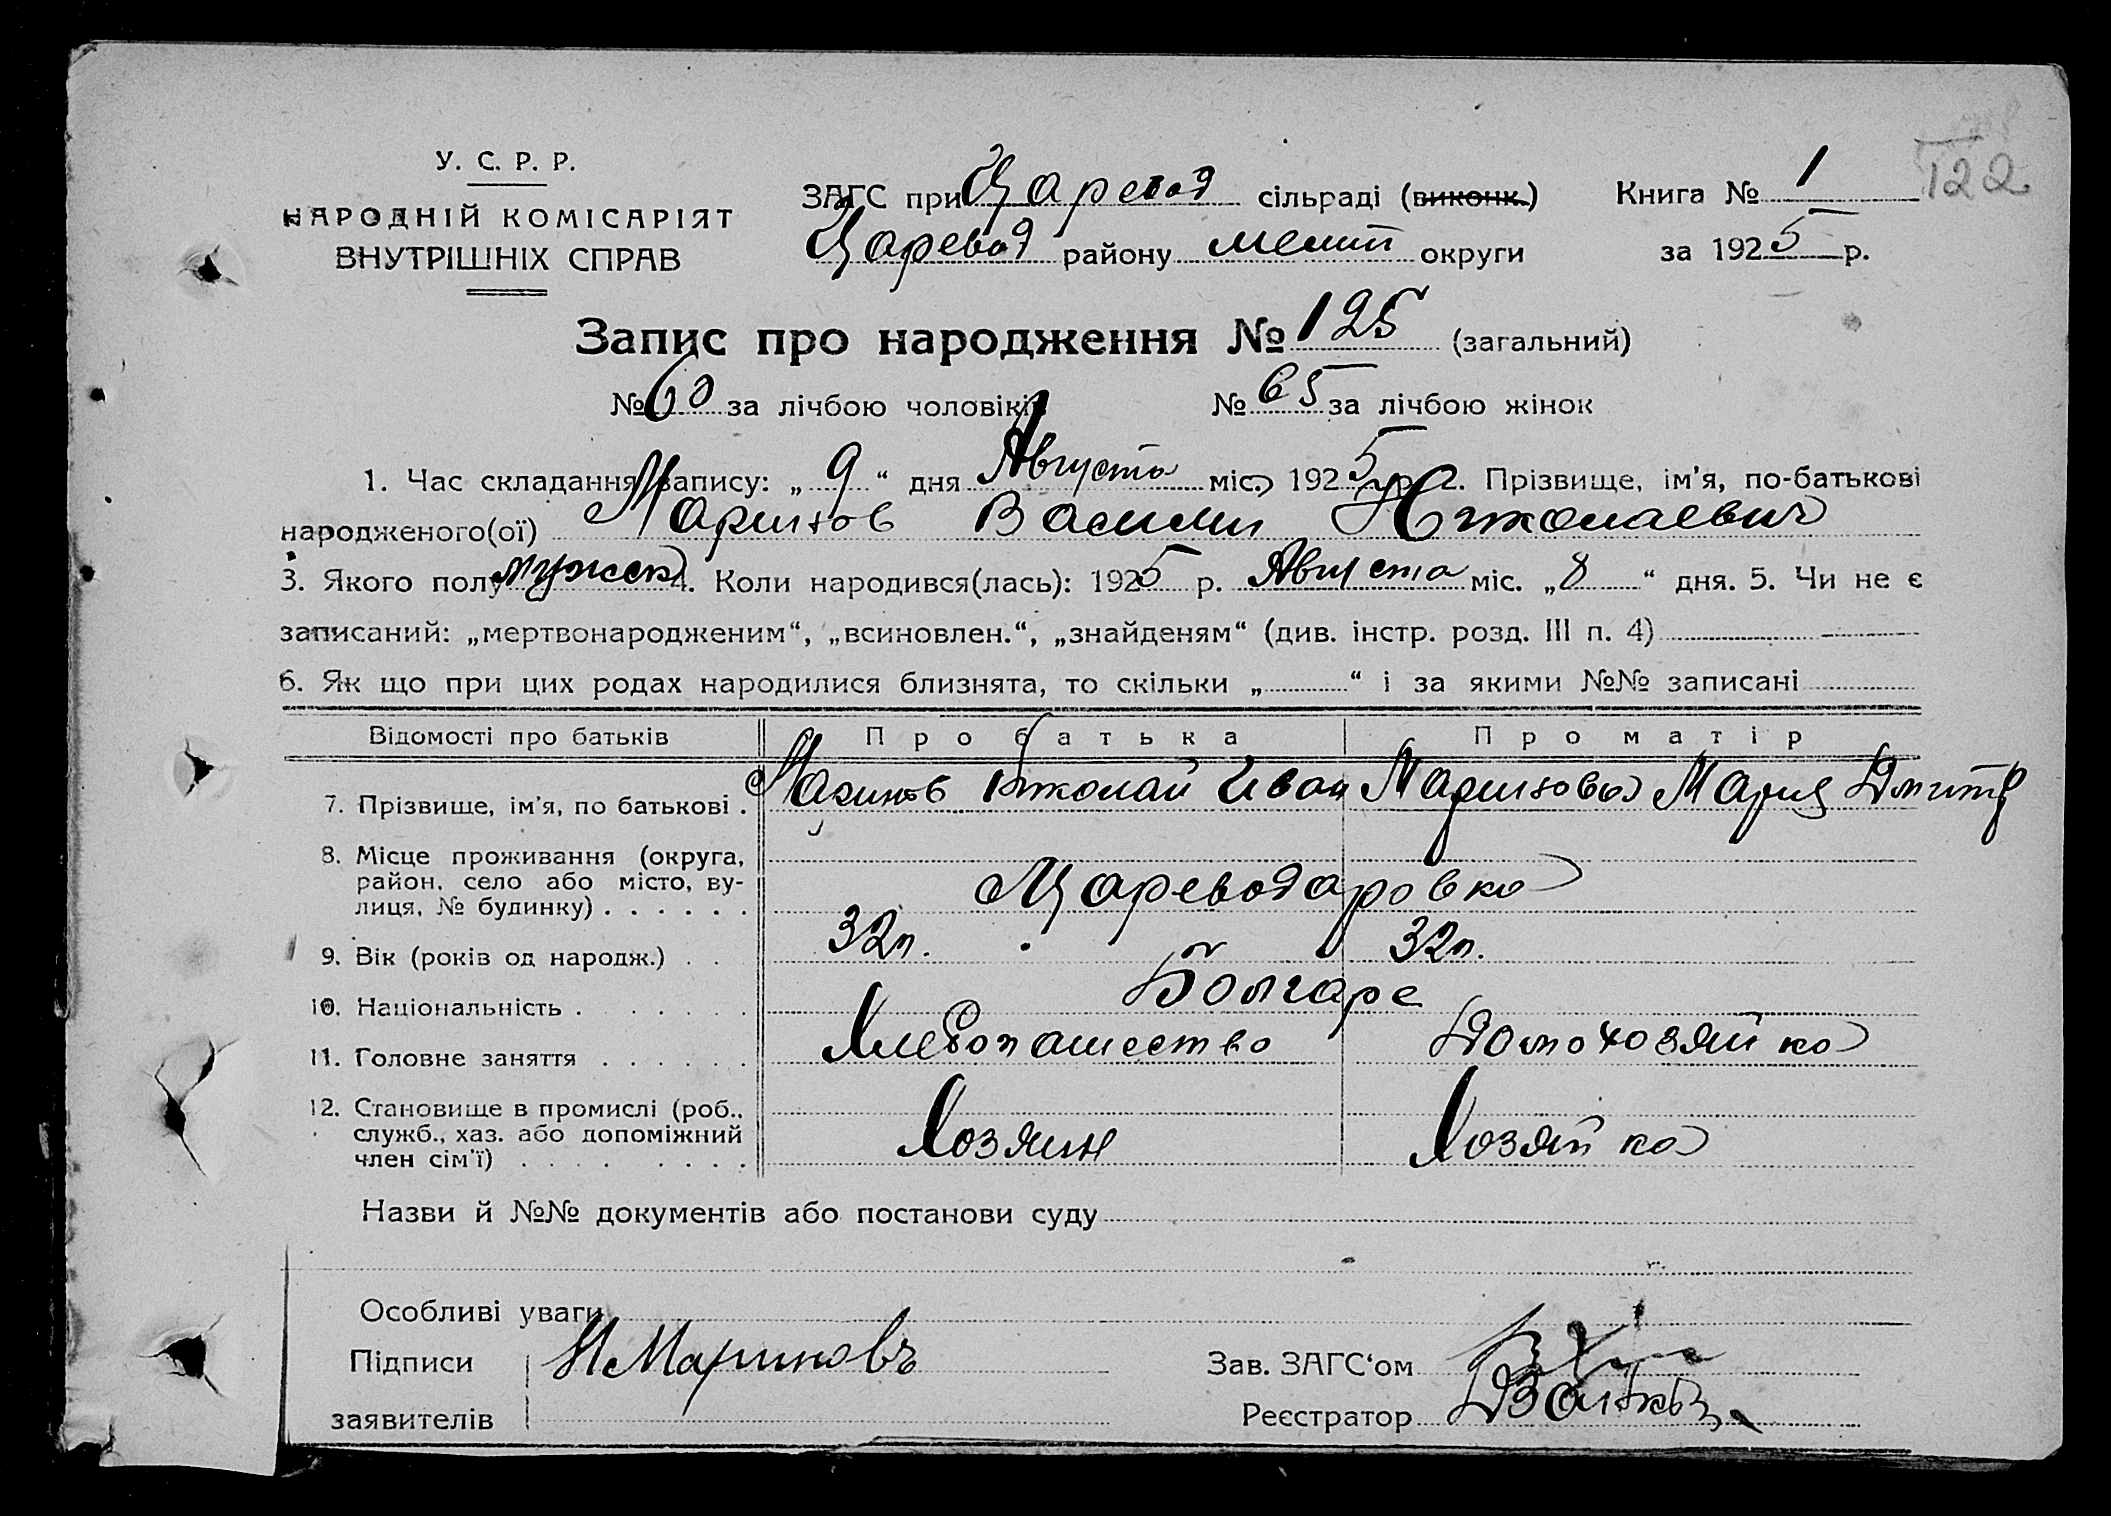 122
У. С. Р. Р.
НАРОДНІЙ КОМІСАРІЯТ
ВНУТРІШНІХ СПРАВ
ЗАГС при Царевод сільраді (виконк.) Книга № 1
Царевод району мелит округи за 1925 р.
Запис про народження № 125 (загальний)
№ 60 за лічбою чоловіків № 65 за лічбою жінок
1. Час складання запису: „ 9 “ дня Августа міс. 1925 р. 2. Прізвище, ім'я, по-батькові
народженого(ої) Маринов Василий Николаевич
3. Якого полу мужск 4. Коли народився(лась): 1925 р. Августа міс. „ 8 “ дня. 5. Чи не є
записаний: „мертвонародженим“, „всиновлен.“, „знайденям“ (див. інстр. розд. III п. 4)
6. Як що при цих родах народилися близнята, то скільки „ “ і за якими №№ записані
Відомості про батьків Про батька Про матір
7. Прізвище, ім'я, по батькові . Маринов Николай Иван Маринова Мария Дмитр
8. Місце проживання (округа,
район, село або місто, ву-
лиця, № будинку) . . . . . . Цареводаровка
9. Вік (років од народж.) . . 32л. 32л.
10. Національність . . . . . . . Болгаре
11. Головне заняття . . . . . . Хлебопашество Домохозяйка
12. Становище в промислі (роб.,
служб., хаз. або допоміжний
член сім'ї) . . . . . . . . . Хозяин Хозяйка
Назви й №№ документів або постанови суду
Особливі уваги
Підписи Н Мариновъ Зав. ЗАГС‘ом
заявителів Реєстратор